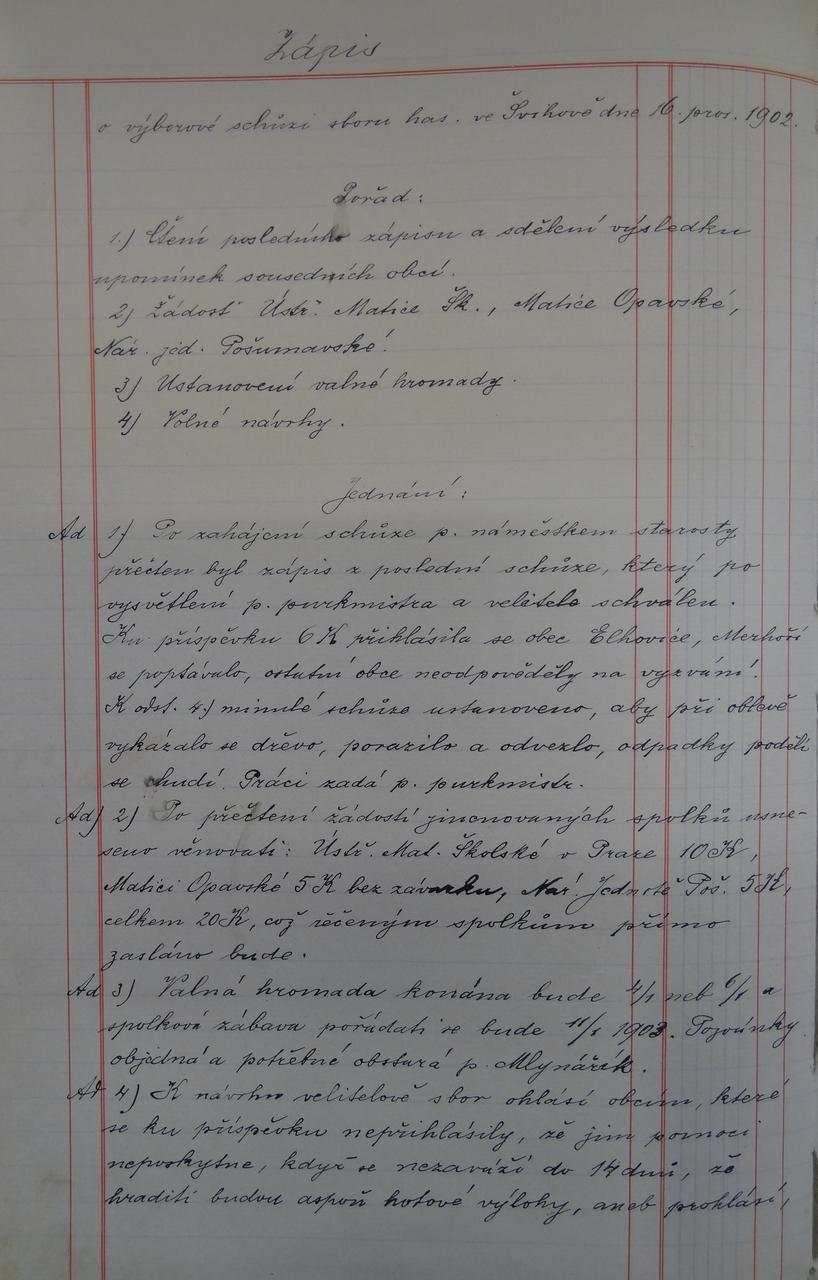 Zápis
o výborové schůzi sboru has. ve Švihově dne 16. pros. 1902.
Pořad:
1.) Čtení posledního zápisu a sdělení výsledku
upomínek sousedních obcí.
2) Žádost Ústř. Matice Šk., Matice Opavské,
Nár. jed. Pošumavské.
3) Ustanovení valné hromady.
4) Volné návrhy.
Jednání:
Ad 1.) Po zahájení schůze p. náměstkem starosty
přečten byl zápis z poslední schůze, který po
vysvětlení p. purkmistra a velitele schválen.
Ku příspěvku 6 K přihlásila se obec Elhovice, Mezhoří
se poptávalo, ostatní obce neodpověděly na vyzvání.
K odst. 4.) minulé schůze ustanoveno, aby při oblevě
vykázalo se dřevo, porazilo a odvezlo, odpadky podělí
se chudí. Práci zadá p. purkmistr.
Ad) 2) Po přečtení žádostí jmenovaných spolků usne-
seno věnovati: Ústř. Mat. Školské v Praze 10 K,
Matici Opavské 5 K bez závazku, Nár. Jednotě Poš. 5 K,
celkem 20 K, což řečeným spolkům přímo
zasláno bude.
Ad 3) Valná hromada konána bude 4/1 neb 6/1 a
spolková zábava pořádati se bude 11/1 1903. Pozvánky
objedná a potřebné obstará p. Mlynářík.
Ad 4) K návrhu velitelově sbor ohlásí obcím, které
se ku příspěvku nepřihlásily, že jim pomoci
neposkytne, když se nezaváží do 14 dnů, že
hraditi budou aspoň hotové výlohy, aneb prohlásí,